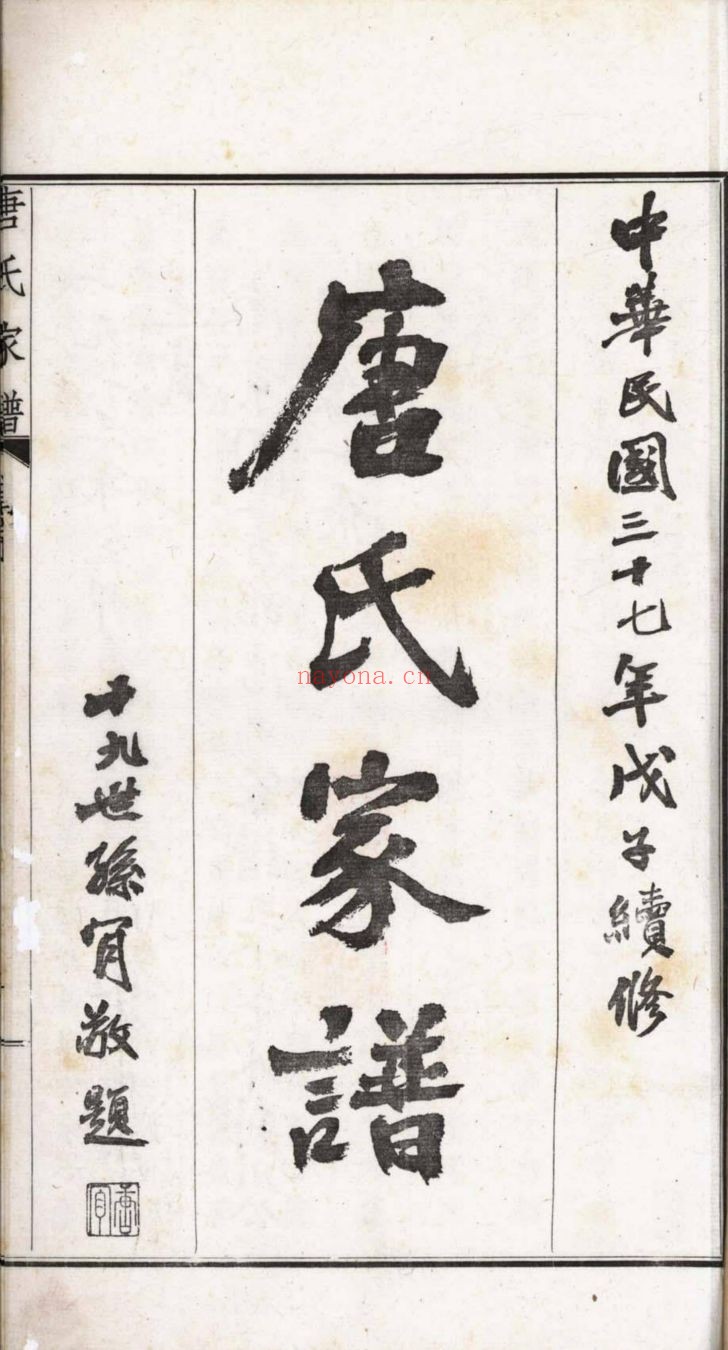 中華民國三十七年戊子續修
唐氏家譜
十九世孫肎敬題
唐肎
唐氏家譜
nayona.cn